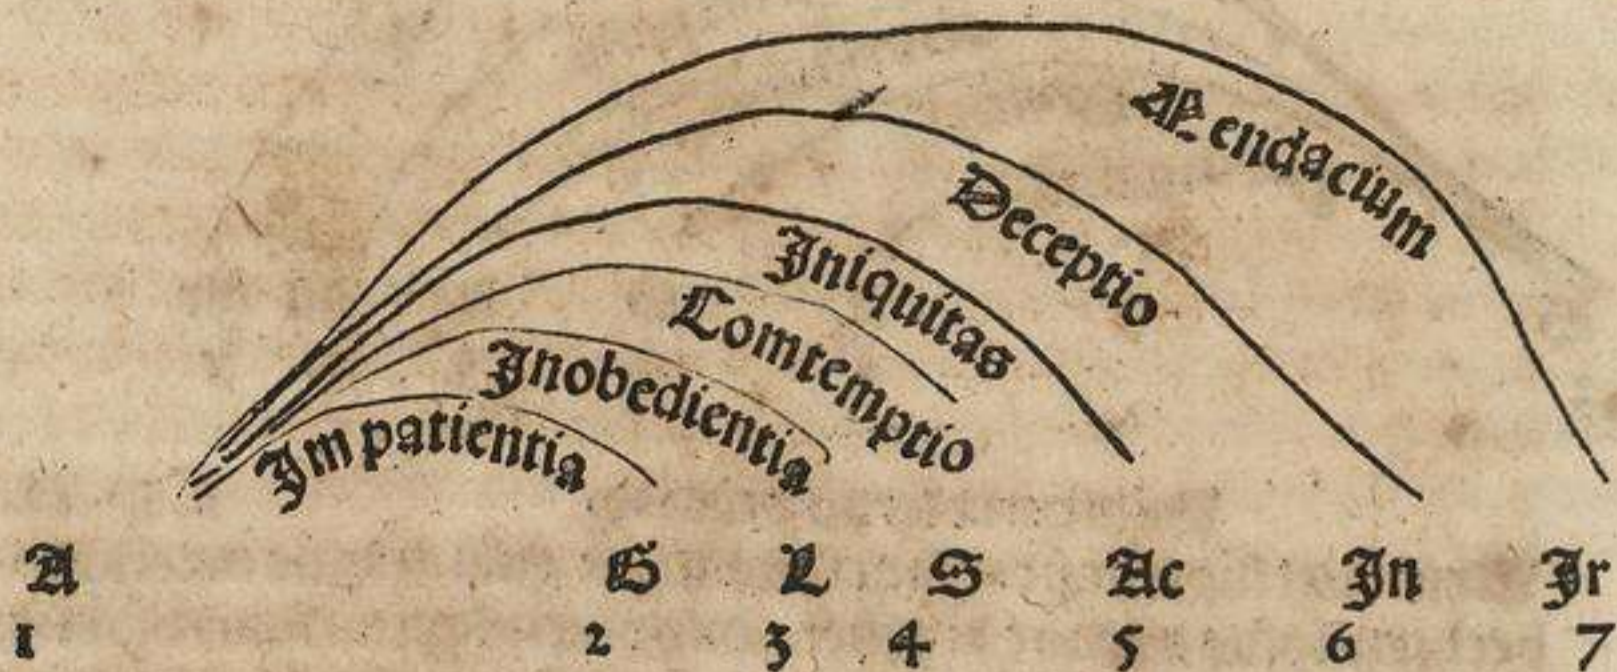 Mendacium
Deceptio
Iniquitas
Comtemptio
Inobedientia
Impatientia
A G L S Ac In Ir
1 2 3 4 5 6 7